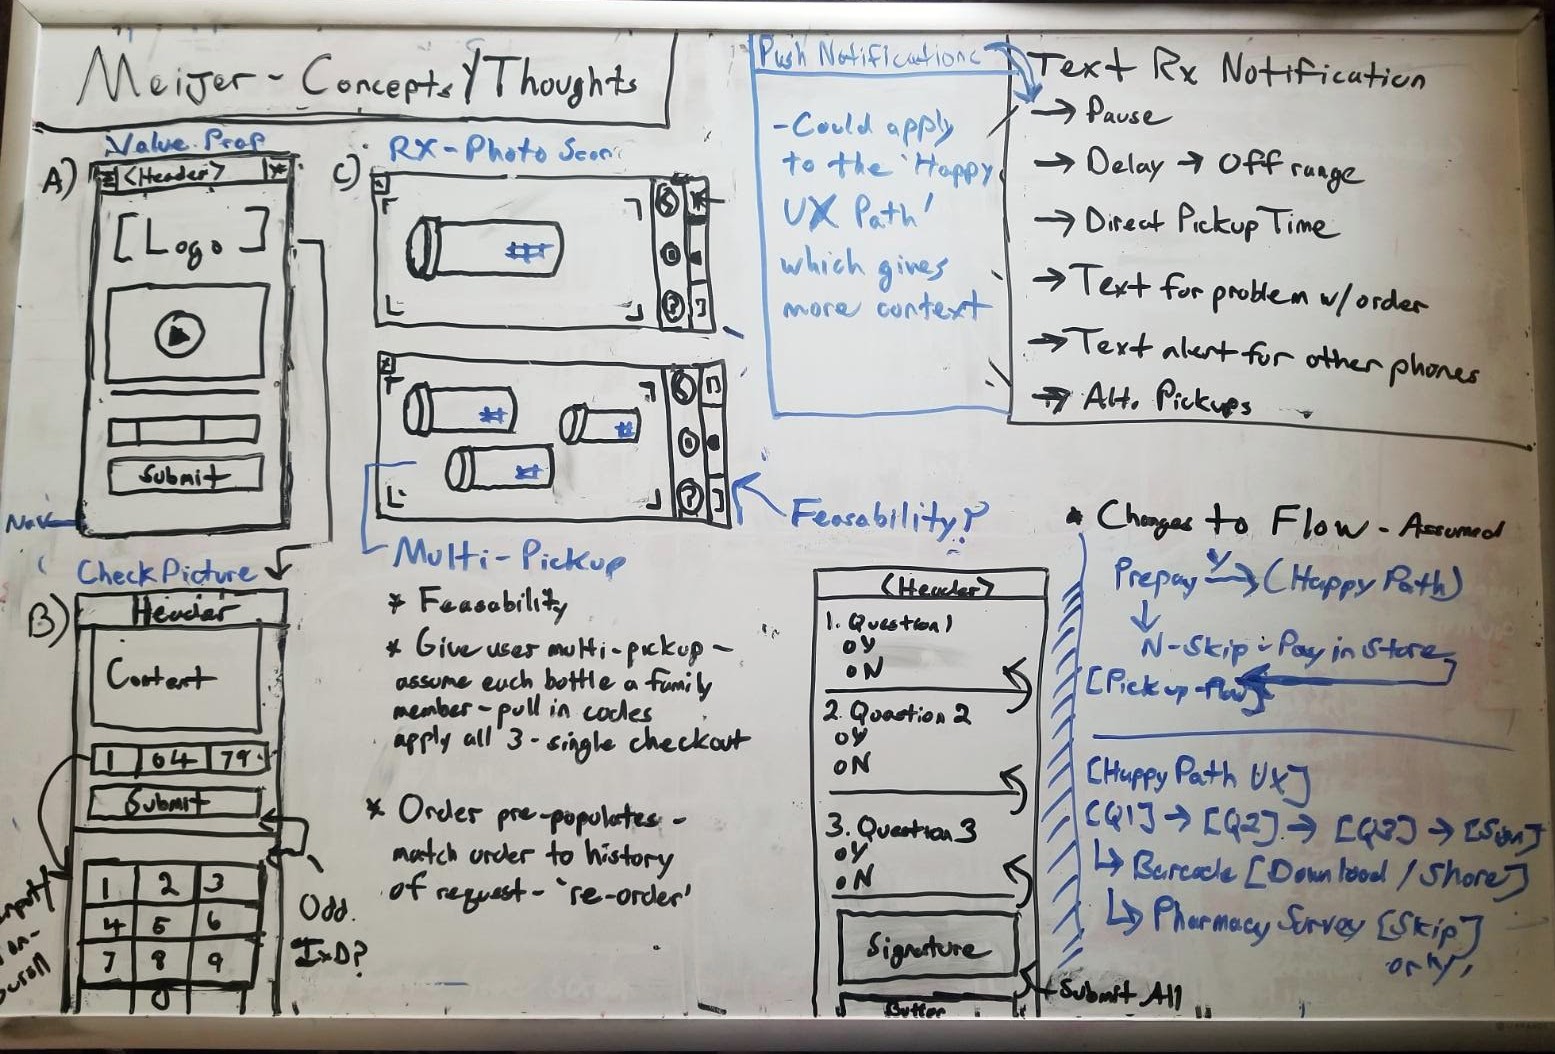 Meijer - Concepts / Thoughts
Value Prop
A)
<Header>
[Logo]
Submit
Nav
Check Picture
B)
Header
Content
1 64 79
Submit
1 2 3
4 5 6
7 8 9
0
Input
on-
scroll
Odd
IxD?
C)
RX-Photo Scan
?
?
Multi-Pickup
* Feasability
* Give user multi-pickup -
assume each bottle a family
member - pull in codes
apply all 3 - single checkout
* Order pre-populates -
match order to history
of request - 're-order'
Feasability?
Push Notifications
- Could apply
to the 'Happy
UX Path'
which gives
more context
Text Rx Notification
→ Pause
→ Delay → Off range
→ Direct Pickup Time
→ Text for problem w/order
→ Text alert for other phones
→ Alt. Pickups
<Header>
1. Question 1
o Y
o N
2. Question 2
o Y
o N
3. Question 3
o Y
o N
Signature
Button
Submit All
* Changes to Flow - Assumed
Prepay Y → (Happy Path)
N-Skip - Pay in Store
[Pickup-Flow]
[Happy Path UX]
[Q1] → [Q2] → [Q3] → [Sign]
↳ Barcode [Download / Share]
↳ Pharmacy Survey [Skip]
or